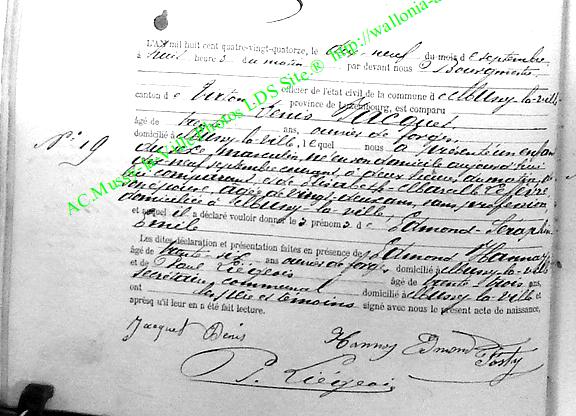 L'AN mil huit cent quatre-vingt-quatorze, le dix-neuf du mois de septembre
à huit heures du matin, par devant nous Bourgmestre
officier de l'état civil de la commune de Mussy-la-ville
canton de Virton province de Luxembourg, est comparu
Denis Jacquet
âgé de ans, ouvrier de forges,
domicilié à Mussy-la-ville, lequel nous a présenté un enfant
du sexe masculin né en son domicile aujourd'hui
dix-neuf septembre courant, à deux heures du matin, de
lui comparant et de Elisabeth Marcelle Lefèvre
son épouse, âgée de vingt-deux ans, sans profession
domiciliée à Mussy-la-ville
et auquel il a déclaré vouloir donner les prénoms de Edmond-Séraphin
Emile
Les dites déclaration et présentation faites en présence de Edmond Hannay
âgé de trente ans, ouvrier de forges, domicilié à Mussy-la-ville
et de Paul Liégeois âgé de trente-trois ans,
secrétaire communal domicilié à Mussy-la-ville et
ont les père et témoins signé avec nous le présent acte de naissance,
après qu'il leur en a été fait lecture.
N° 19
Jacquet Denis Hannay Edmond
P. Liégeois
AC.Mussy-la-Ville Photos LDS Site.® http://wallonia-a